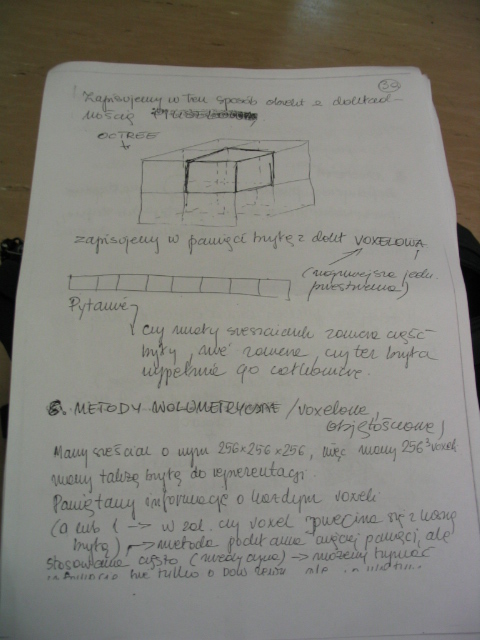 39
Zapisujemy w ten sposób obiekt z dokład-
nością
OCTREE
zapisujemy w pamięci bryłę z dokł VOXELOWĄ
(najmniejsza jedn.
przestrzenna)
Pytanie
czy mały sześcianik zawiera część
bryły, nie zawiera, czy też bryła
wypełnia go całkowicie.
6. METODY WOLUMETRYCZNE / voxelowe,
objętościowe /
Mamy sześcian o wym 256×256×256, więc mamy 256³ voxeli
mamy także bryłę do reprezentacji.
Pamiętamy informację o każdym voxelu
(0 lub 1 → w zal. czy voxel przecina się z naszą
bryłą) → metoda pochłania więcej pamięci, ale
stosowana często (medycyna) → możemy trzymać
nie tylko o pow ale